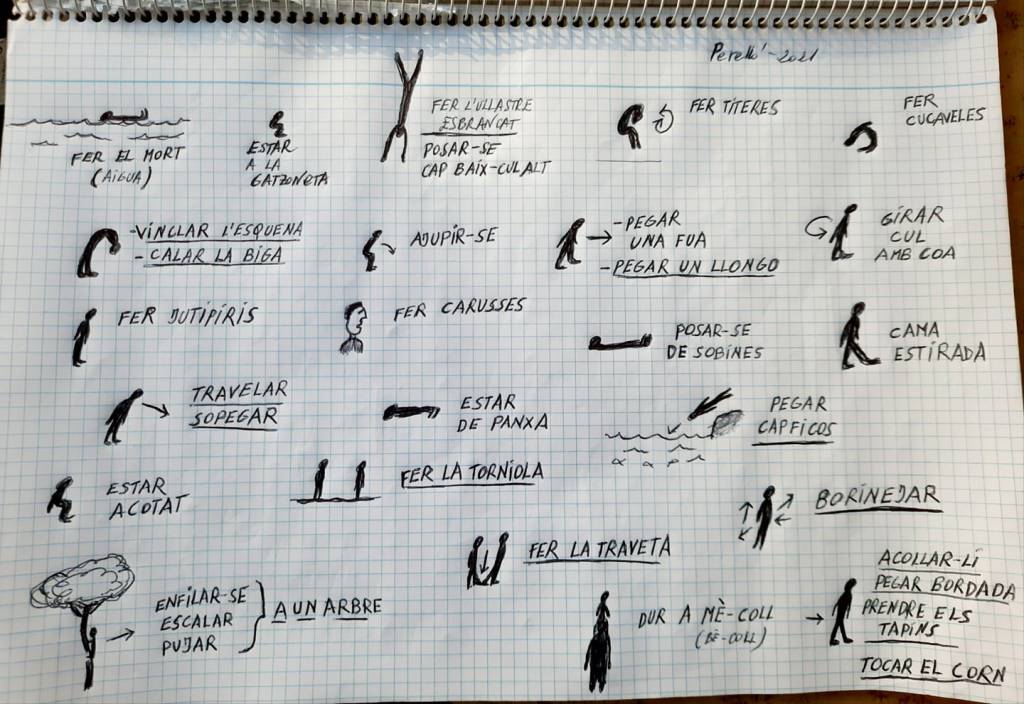 Perelló-2021
FER EL MORT
(AIGUA)
ESTAR
A LA
GATZONETA
FER L'ULLASTRE
ESBRANCAT
POSAR-SE
CAP BAIX-CUL ALT
FER TÍTERES
FER
CUCAVELES
-VINCLAR L'ESQUENA
- CALAR LA BIGA
AJUPIR-SE
-PEGAR
UNA FUA
-PEGAR UN LLONGO
GIRAR
CUL
AMB COA
FER JUTIPIRIS
FER CARUSSES
POSAR-SE
DE SOBINES
CAMA
ESTIRADA
TRAVELAR
SOPEGAR
ESTAR
DE PANXA
PEGAR
CAPFICOS
ESTAR
ACOTAT
FER LA TORNIOLA
BORINEJAR
FER LA TRAVETA
ENFILAR-SE
ESCALAR
PUJAR
A UN ARBRE
DUR A MÈ-COLL
(BÈ-COLL)
ACOLLAR-LI
PEGAR BORDADA
PRENDRE ELS
TAPINS
TOCAR EL CORN